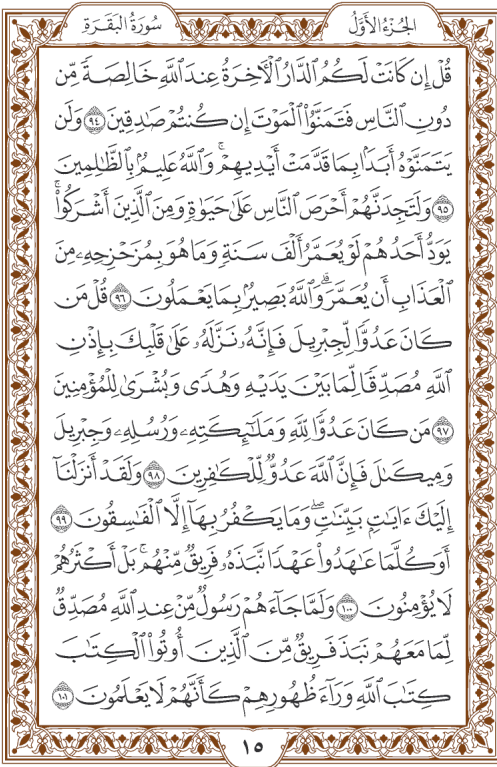 الجُزْءُ الأَوَّلُ
سُورَةُ البَقَرَةِ
قُلْ إِن كَانَتْ لَكُمُ ٱلدَّارُ ٱلْأٓخِرَةُ عِندَ ٱللَّهِ خَالِصَةً مِّن
دُونِ ٱلنَّاسِ فَتَمَنَّوُا۟ ٱلْمَوْتَ إِن كُنتُمْ صَٰدِقِينَ ٩٤ وَلَن
يَتَمَنَّوْهُ أَبَدًۢا بِمَا قَدَّمَتْ أَيْدِيهِمْ ۗ وَٱللَّهُ عَلِيمٌۢ بِٱلظَّٰلِمِينَ
٩٥ وَلَتَجِدَنَّهُمْ أَحْرَصَ ٱلنَّاسِ عَلَىٰ حَيَوٰةٍ وَمِنَ ٱلَّذِينَ أَشْرَكُوا۟ ۚ
يَوَدُّ أَحَدُهُمْ لَوْ يُعَمَّرُ أَلْفَ سَنَةٍ وَمَا هُوَ بِمُزَحْزِحِهِۦ مِنَ
ٱلْعَذَابِ أَن يُعَمَّرَ ۗ وَٱللَّهُ بَصِيرٌۢ بِمَا يَعْمَلُونَ ٩٦ قُلْ مَن
كَانَ عَدُوًّا لِّجِبْرِيلَ فَإِنَّهُۥ نَزَّلَهُۥ عَلَىٰ قَلْبِكَ بِإِذْنِ
ٱللَّهِ مُصَدِّقًا لِّمَا بَيْنَ يَدَيْهِ وَهُدًى وَبُشْرَىٰ لِلْمُؤْمِنِينَ
٩٧ مَن كَانَ عَدُوًّا لِّلَّهِ وَمَلَٰٓئِكَتِهِۦ وَرُسُلِهِۦ وَجِبْرِيلَ
وَمِيكَىٰلَ فَإِنَّ ٱللَّهَ عَدُوٌّ لِّلْكَٰفِرِينَ ٩٨ وَلَقَدْ أَنزَلْنَآ
إِلَيْكَ ءَايَٰتٍۭ بَيِّنَٰتٍ ۖ وَمَا يَكْفُرُ بِهَآ إِلَّا ٱلْفَٰسِقُونَ ٩٩
أَوَكُلَّمَا عَٰهَدُوا۟ عَهْدًا نَّبَذَهُۥ فَرِيقٌ مِّنْهُم ۚ بَلْ أَكْثَرُهُمْ
لَا يُؤْمِنُونَ ١٠٠ وَلَمَّا جَآءَهُمْ رَسُولٌ مِّنْ عِندِ ٱللَّهِ مُصَدِّقٌ
لِّمَا مَعَهُمْ نَبَذَ فَرِيقٌ مِّنَ ٱلَّذِينَ أُوتُوا۟ ٱلْكِتَٰبَ
كِتَٰبَ ٱللَّهِ وَرَآءَ ظُهُورِهِمْ كَأَنَّهُمْ لَا يَعْلَمُونَ ١٠١
١٥